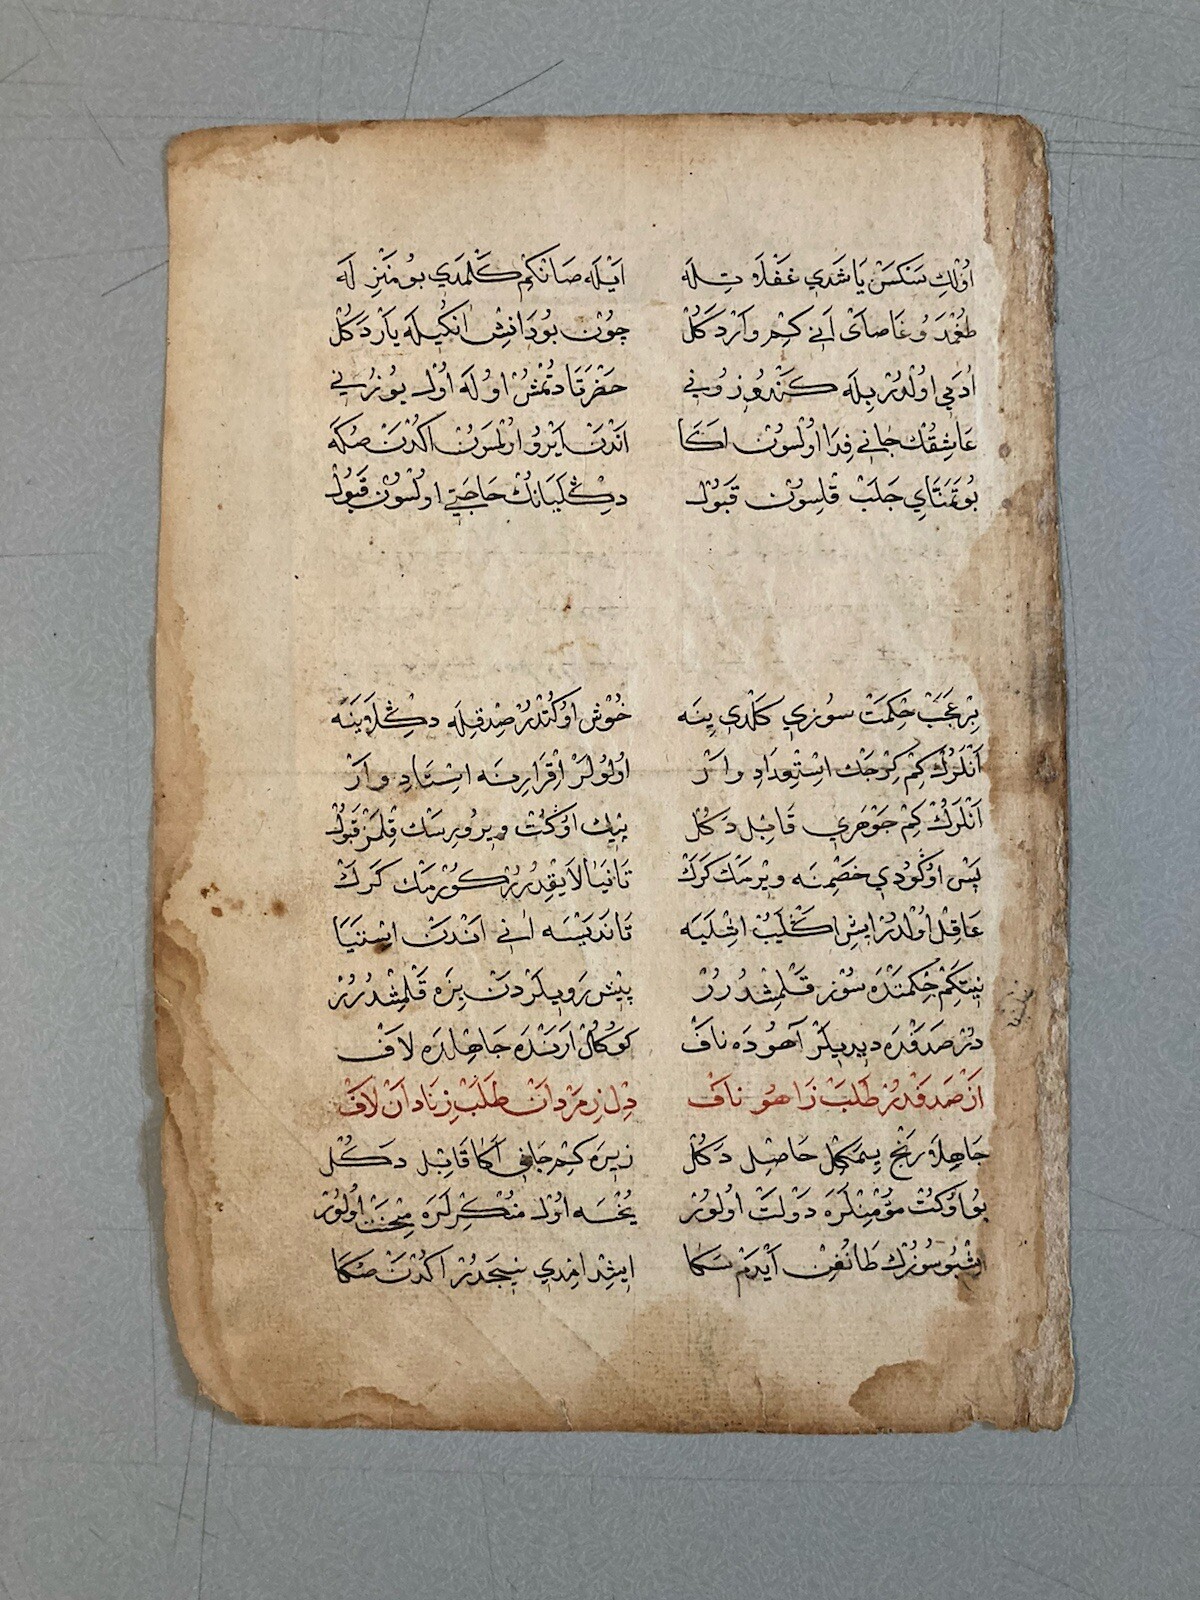 اُولْكِ سَنكسَنْ يَاشَدِي غفْلَة تِلَه ايْلَه صَانْكِم كَلْمَدِي بُو مَنْزِلَه
طُغْمَدِ وُ غَاصَاىْ اَنِي كِيمْ وَارْدَكُلْ چُونْ بُو دَانِشْ اَنْكِيلَه يَارْ دَكُلْ
اُدَمِي اُولْدُرْ بِلَه كَنْدُوزُونِي حَضْرَتَا دُتْمِشْ اُولَه اُولْ يُوزُنِي
عَاشِقُڭْ جَانِي فِدَا اُولْسُونْ اَكَا اَنْدَنْ اَيْرُو اُولْمَسُونْ اَكْدُنْ صُكَه
بُو تَمَنَّايِ چَلَبْ قَلسُونْ قَبُولْ دِكْلَيَانُكْ حَاجَتِي اُولْسُونْ قَبُولْ
بِرْ عَجَبْ حِكْمَتْ سُوزِي كَلْدِي يِنَه خُوشْ اُوكُتْدُرْ صِدْقِلَه دِكْلَايَنَه
اَنْلَرُكْ كِمْ كِرْچَكْ اسْتِعْدَادِ وَارْ اُولُولَرْ اِقْرَارِنَه اسْتَادِ وَارْ
اَنْلَرُكْ كِمْ جَوْهَرِي قَابِل دَكُلْ بِيكْ اُوكُتْ وِيرُوبِرْسَكْ قِلْمَزْ قَبُولْ
پَسْ اُوكُودِي خَصْمِنَه وِيرْمَكْ كَرَكْ تَا نِيَا لَايِقْدُرُرْ كُورْمَكْ كَرَكْ
عَاقِلْ اُولْدُرْ اِيشِ اَكْلَيُبْ اِشْلَيَه تَا نَدِيسَه اَنِي اَنْدَنْ اسْتَيَا
نِيتَكِمْ حِكْمَتْدَه سُوزْ قَلْمِشْدُرُرْ پِيشْرَويلَرْدَنْ بِزَه قَلْمِشْدُرُرْ
دُرْ صَدَفْدَه دِيدِيلَرْ آهُودَه نَافْ كُوكُلْ اَرَنْدَه جَاهِلْدَه لَافْ
اَزْ صَدَفْ دُرْ طَلَبْ زَاهُو نَافْ دِلْ زِمَرْدَانْ طَلَبْ زِنَادَانْ لَافْ
جَاهِلَه رَنْجْ يِمَكْلْ حَاصِل دَكُلْ زِيرَه كِيمْ جَانِي اَكَا قَابِل دَكُلْ
بُو اُوكُتْ مُؤْمِنْلَرَه دَوْلَتْ اُولُورْ يُخْسَه اُولْ مُنْكِرْلَرَه مِحْنَتْ اُولُورْ
اِشْبُو سُوزُكْ طَانُغِنْ اَيْدَمْ سَكَا اِيشِدْ اِمْدِي نِيجَدُرْ اَكْدُنْ صُكَا